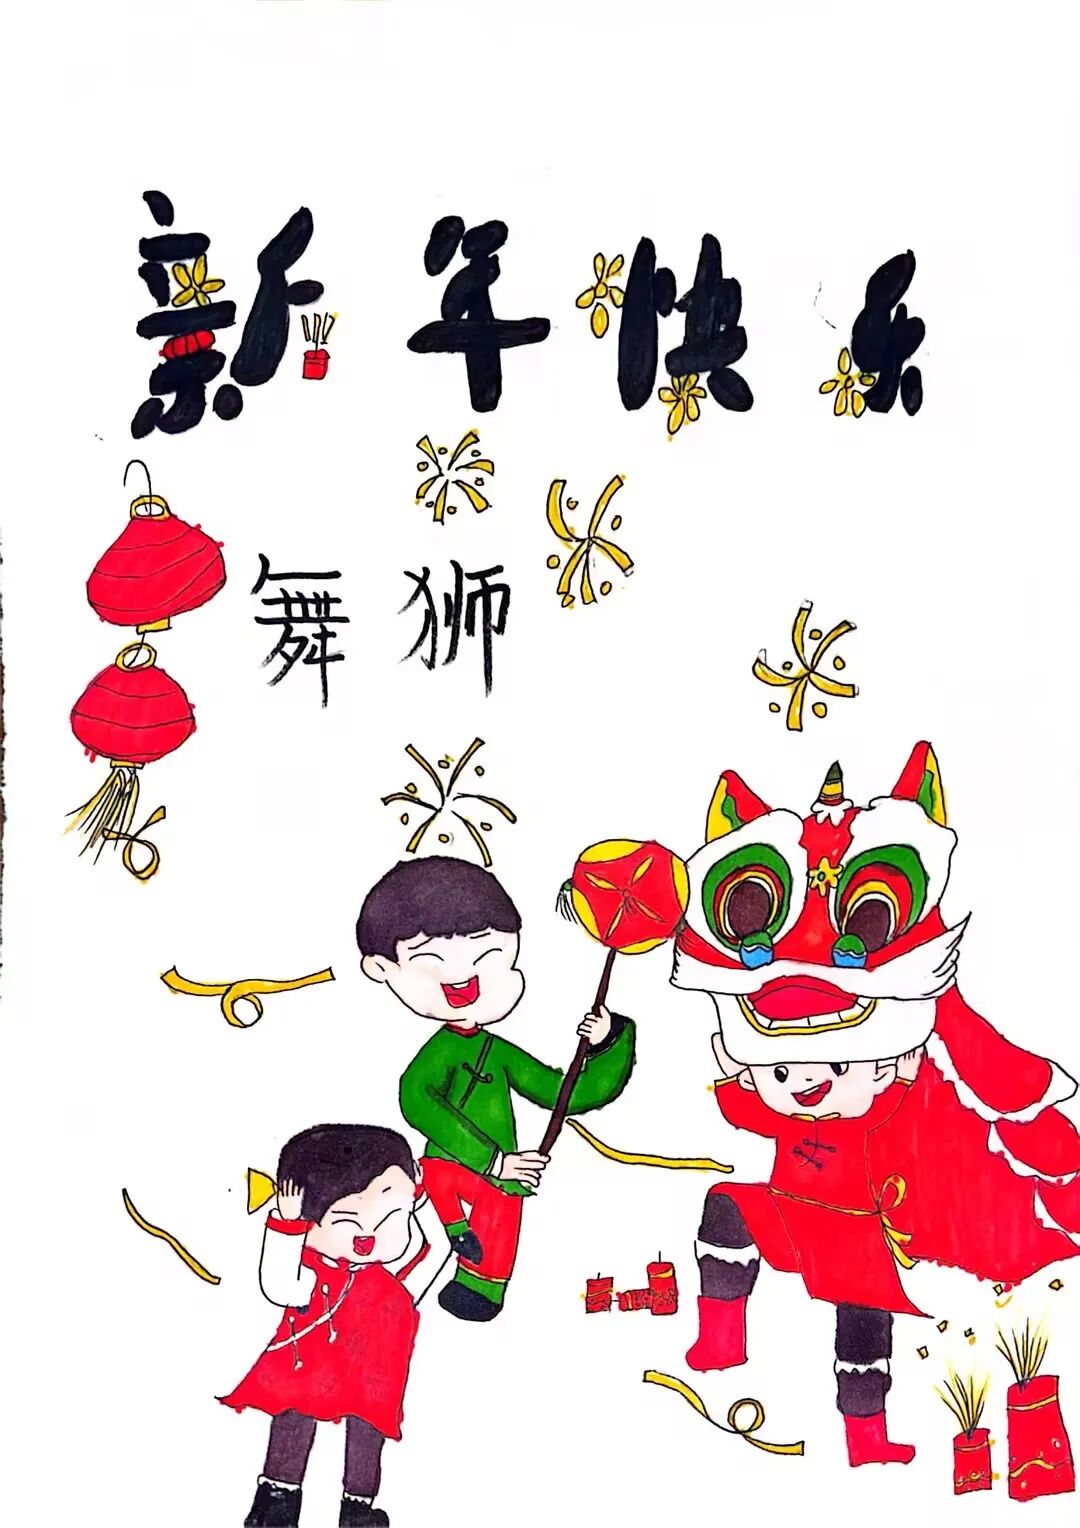 新年快乐
舞狮